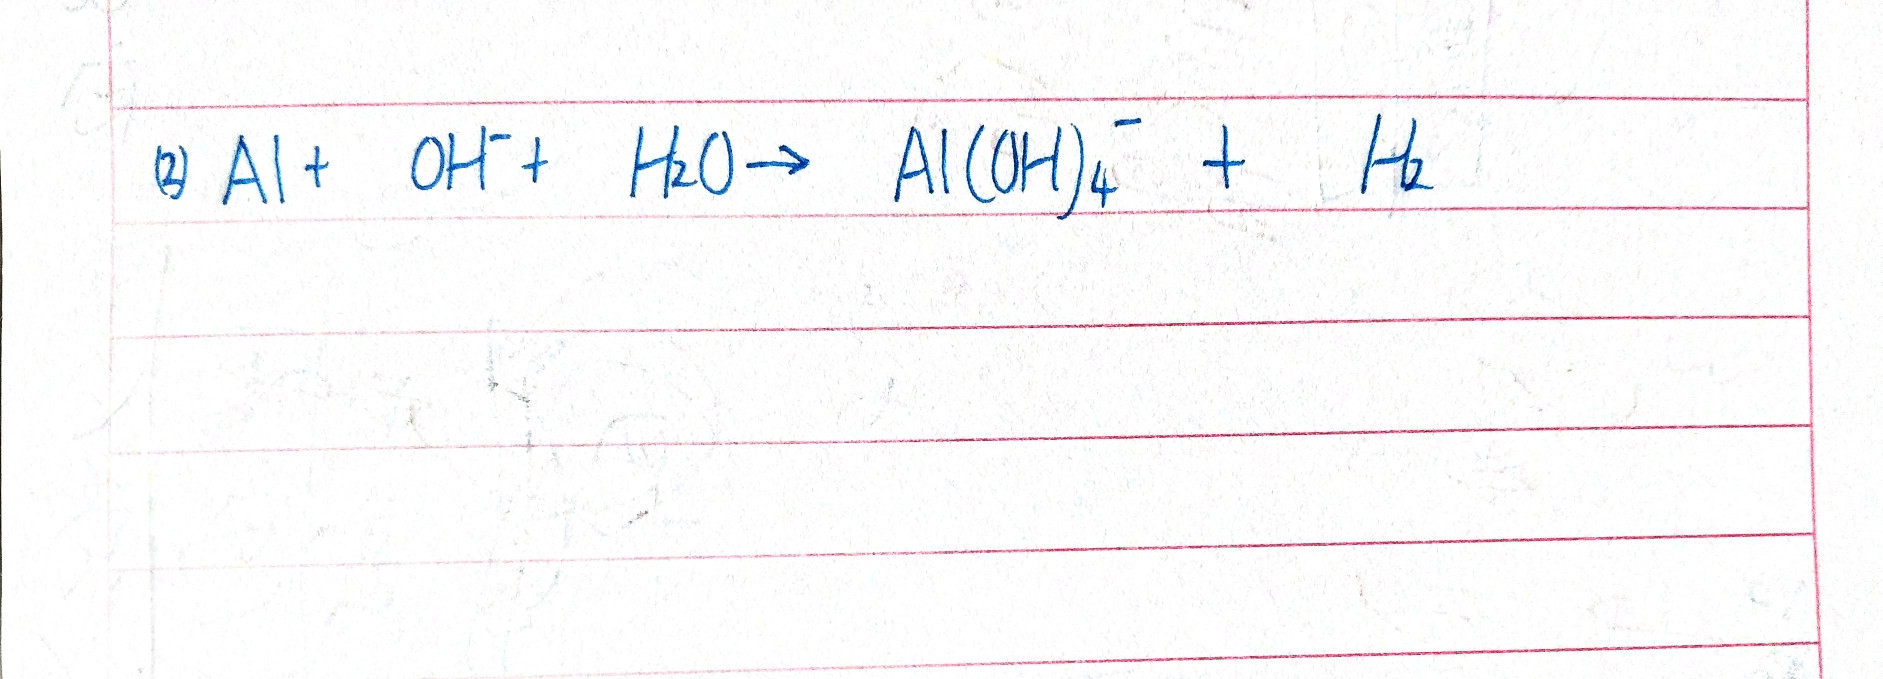 (2) Al + OH⁻ + H₂O → Al(OH)₄⁻ + H₂